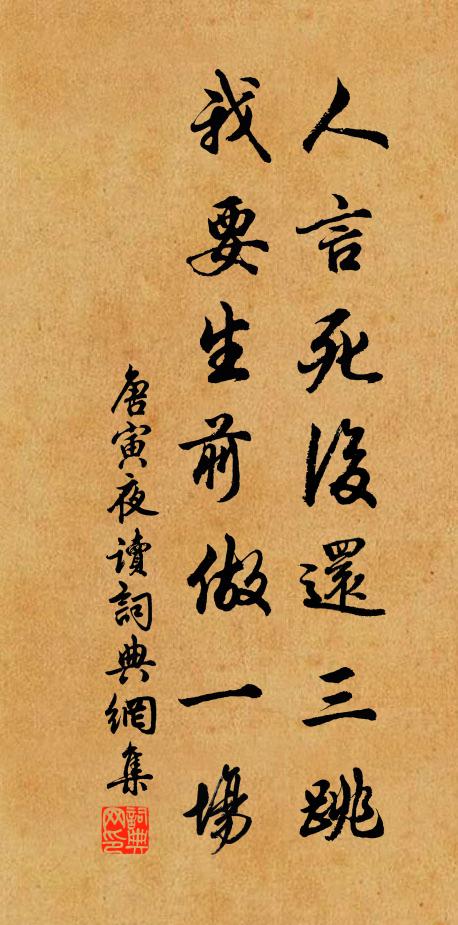 人言死後還三跳
我要生前做一場
唐寅夜讀詞典網集
詞典网印